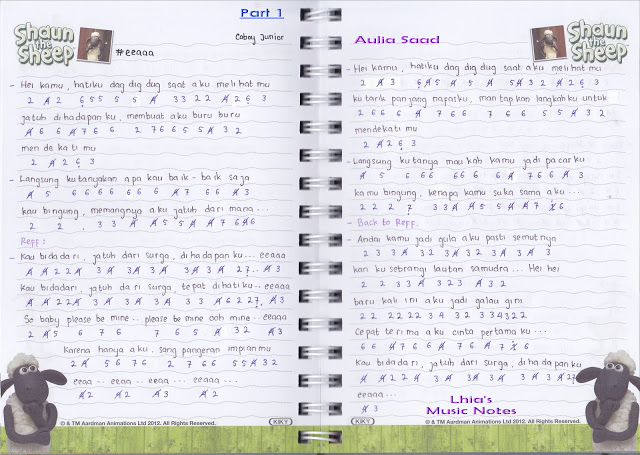 Part 1
Shaun the Sheep
#eeaaa
Coboy Junior
- Hei kamu, hatiku dag dig dug saat aku melihat mu
2 4 2 6 5 5 5 5 4 3 3 2 2 4 2 6 3
jatuh dihadapan ku, membuat aku buru buru
4 6 6 4 7 6 6 2 7 6 6 5 5 4 3 2
mendekati mu
2 4 2 6 3
- Langsung kutanyakan apa kau baik-baik saja
4 5 6 6 6 6 6 6 4 7 6 6 4 3
kau bingung, memangnya aku jatuh dari mana...
2 2 . 3 3 4 4 5 5 4 4 7 6 4 6
Reff:
- Kau bidadari, jatuh dari surga, dihadapan ku... eeaaa
4 4 2 2 4 3 4 3 4 3 4 3 4 3 4 2 7.. 4 3
Kau bidadari, jatuh dari surga, tepat dihatiku.. eeaaa
4 4 2 2 4 3 4 3 4 3 4 3 3 4 6 2 2 7, 4 3
So baby please be mine.. please be mine ooh mine.. eeaaa
2 4 5 6 7 6 7 6 5 4 3 2 4 3
Karena hanya aku, sang pangeran impianmu
2 4 5 6 7 6 2 7 6 6 5 5 4 3 2
eeaa.. eeaa.. eeaa... eeaaa...
4 2 4 2 4 3 4 2
© & TM Aardman Animations Ltd 2012. All Rights Reserved.
KIKY
Aulia Saad
Shaun the Sheep
- Hei kamu, hatiku dag dig dug saat aku melihat mu
2 4 3 6 4 5 4 5 4 5 4 3 2 4 2 6 3
ku tarik panjang napasku, mantapkan langkahku untuk
2 6 6 6 4 7 6 6 7 6 6 5 5 4 3 2
mendekati mu
2 4 2 6 3
- Langsung kutanya maukah kamu jadi pacarku
4 5 6 6 6 6 6 6 4 7 6 6 4 3
kamu bingung, kenapa kamu suka sama aku...
2 2 2 7 3 3 4 4 5 5 4 4 7 2 6
- Back to Reff.
- Andai kamu jadi gula aku pasti semutnya
2 3 3 4 3 2 3 4 3 2 3 4 3
kan ku sebrang lautan samudra... Hei hei
2 2 3 3 4 3 2 3 4 3 2
baru kali ini aku jadi galau gini
2 2 2 2 2 2 3 4 3 2 3 3 4 3 2 2
Cepat terima aku cinta pertama ku...
6 6 4 7 6 6 4 7 6 4 7 2 6
Kau bidadari, jatuh dari surga, dihadapan ku
4 4 2 2 4 3 4 3 4 3 4 3 4 3 4 2 7
eeaaa...
4 3
Lhia's
Music Notes
© & TM Aardman Animations Ltd 2012. All Rights Reserved.
KIKY